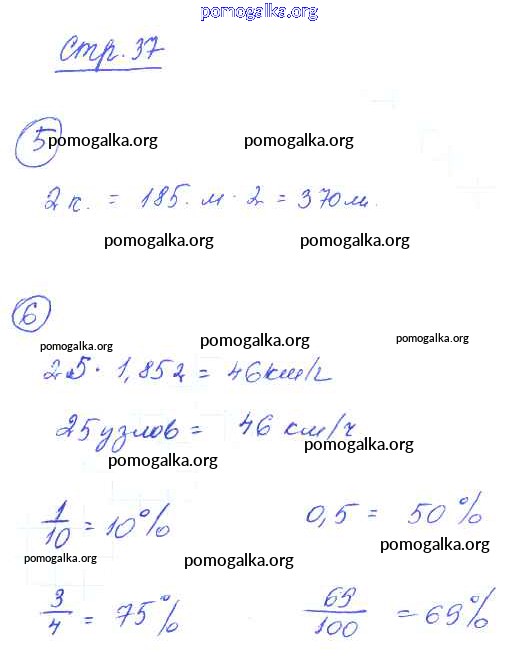 pomogalka.org
Стр. 37
5 pomogalka.org pomogalka.org
2 к. = 185. м · 2 = 370 м.
pomogalka.org pomogalka.org
6
pomogalka.org pomogalka.org pomogalka.org
25 · 1,852 = 46 км/ч
25 узлов = 46 км/ч
pomogalka.org pomogalka.org
1/10 = 10% 0,5 = 50%
pomogalka.org pomogalka.org pomogalka.org
3/4 = 75% 69/100 = 69%